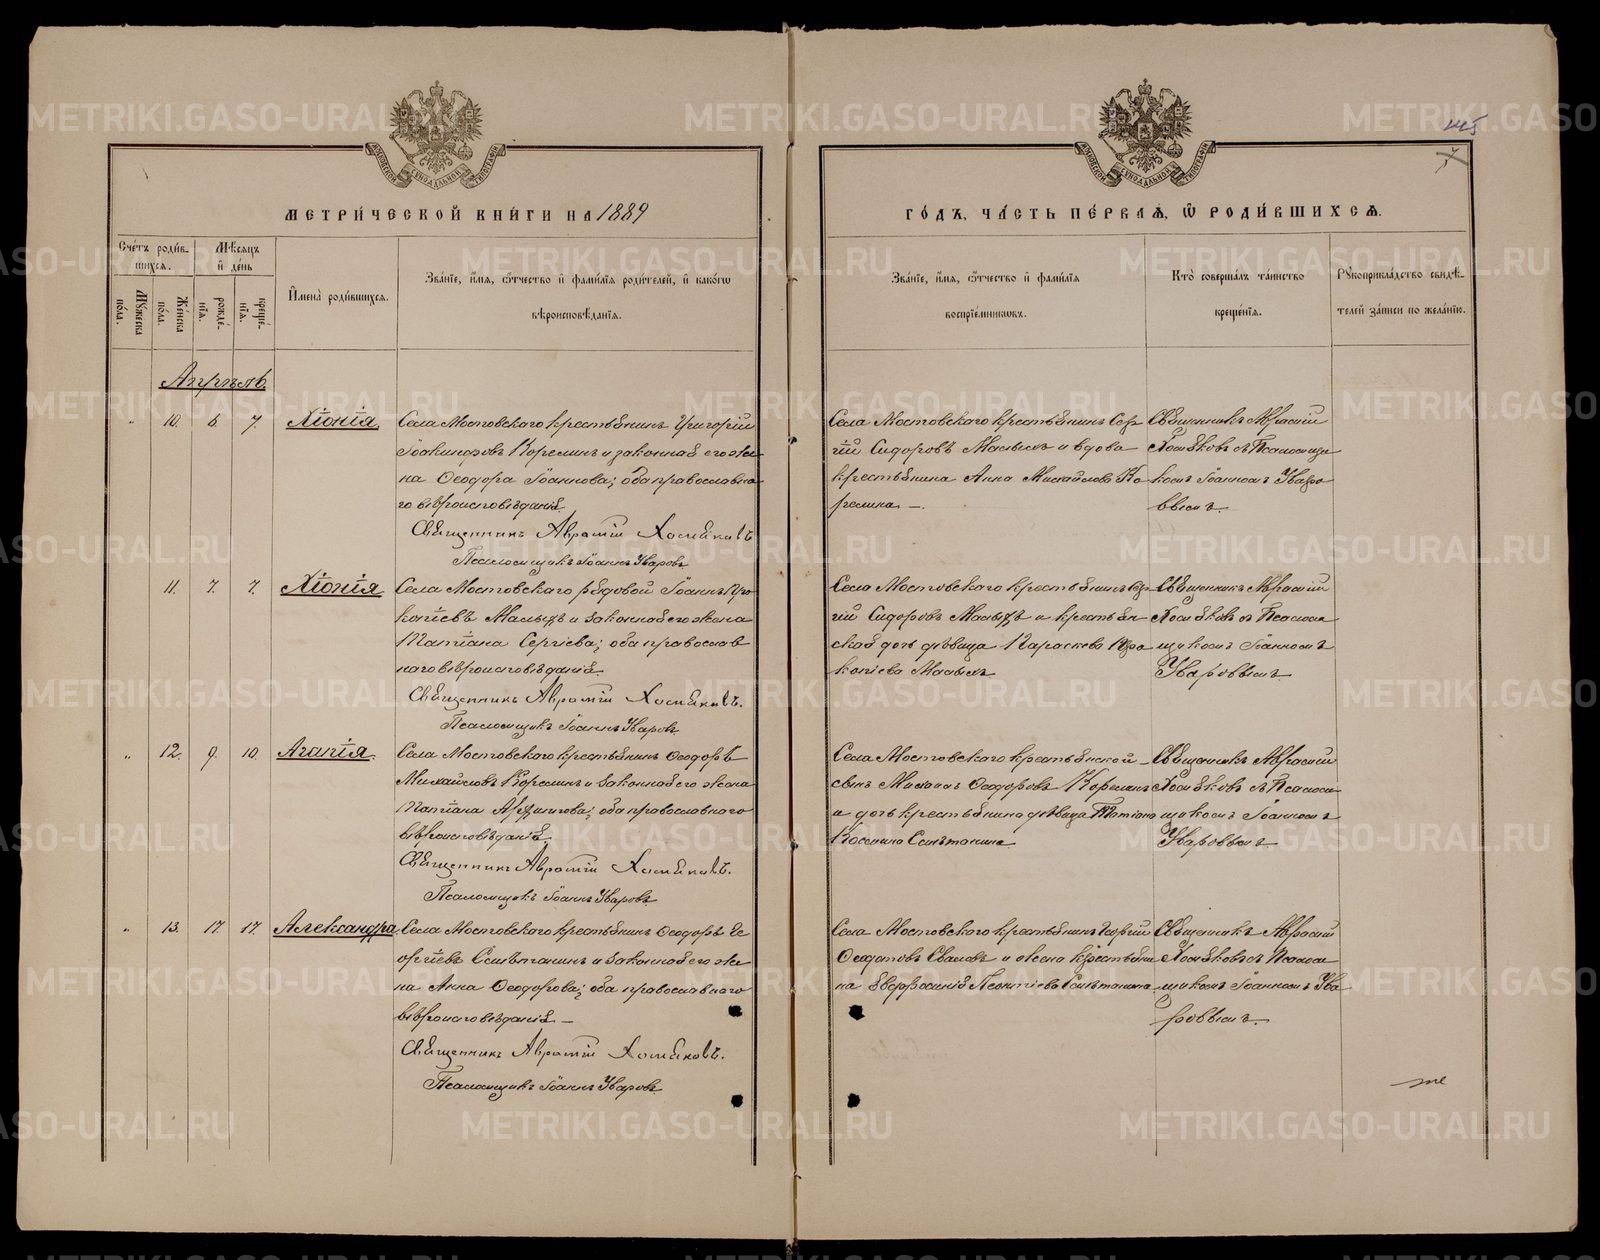 МЕТРИ́ЧЕСКОЙ КНИ́ГИ НА 1889
ГО́ДЪ, ЧА́СТЬ ПЕ́РВАѦ, Ѡ҆ РОДИ́ВШИХСѦ.
Сче́тъ роди́в-
шихся.
Мѣ́сяцъ
и҆ де́нь
Му́жеска
по́ла.
Же́нска
по́ла.
рожде́-
нїя.
креще́-
нїя.
И҆мена̀ роди́вшихся.
Зва́нїе, и҆́мя, ѻ҆́тчество и҆ фами́лїя роди́телей, и҆ како́гѡ
вѣроисповѣ́данїя.
Зва́нїе, и҆́мя, ѻ҆́тчество и҆ фами́лїя
воспрїе́мниковъ.
Кто̀ соверша́лъ та́инство
креще́нїя.
Рꙋкоприкла́дство свидѣ́-
телей за́писи по жела́нїю.
Апрѣль
„ 10. 6 7. Хіонія
Села Мостовского крестьянинъ Григорій
Іоакинфовъ Корелинъ и законная его же-
на Ѳеодора Іоаннова; оба православна-
го вѣроисповѣданія.
Священникъ Авраамій Хомяковъ
Псаломщикъ Іоаннъ Уваровъ
Села Мостовского крестьянинъ Сер-
гій Сидоровъ и вдова
крестьянина Анна Михайлова Ко-
релина. —
Священникъ Авраамій
Хомяковъ съ Псаломщи-
комъ Іоанномъ Уваро-
вымъ.
11. 7. 7. Хіонія
Села Мостовского рядовой Іоаннъ Про-
копіевъ и законная его жена
Татіана Сергіева; оба православ-
наго вѣроисповѣданія.
Священникъ Авраамій Хомяковъ.
Псаломщикъ Іоаннъ Уваровъ
Села Мостовского крестьянинъ
гій Сидоровъ и крестьян-
ская дочь дѣвица Параскева Про-
копіева
Священникъ Авраамій
Хомяковъ съ Псалом-
щикомъ Іоанномъ
Уваровымъ.
„ 12. 9. 10. Агапія
Села Мостовского крестьянинъ Ѳеодоръ
Михайловъ Корелинъ и законная его жена
Татіана; оба православного
вѣроисповѣданія.
Священникъ Авраамій Хомяковъ.
Псаломщикъ Іоаннъ Уваровъ
Села Мостовского крестьянской
сынъ Михаилъ Ѳеодоровъ Корелинъ
и дочь крестьянина дѣвица Татіана
Священникъ Авраамій
Хомяковъ съ Псалом-
щикомъ Іоанномъ
Уваровымъ.
„ 13. 17. 17. Александра
Села Мостовского крестьянинъ Ѳеодоръ Ге-
оргіевъ Сметанинъ и законная его же-
на Анна Ѳеодорова; оба православнаго
вѣроисповѣданія. —
Священникъ Авраамій Хомяковъ.
Псаломщикъ Іоаннъ Уваровъ
Села Мостовского крестьянинъ Георгій
и жена крестьяни-
на Евфросинія Леонтіева Сметанина
Священникъ Авраамій
Хомяковъ съ Псалом-
щикомъ Іоанномъ Ува-
ровымъ. —
METRIKI.GASO-URAL.RU